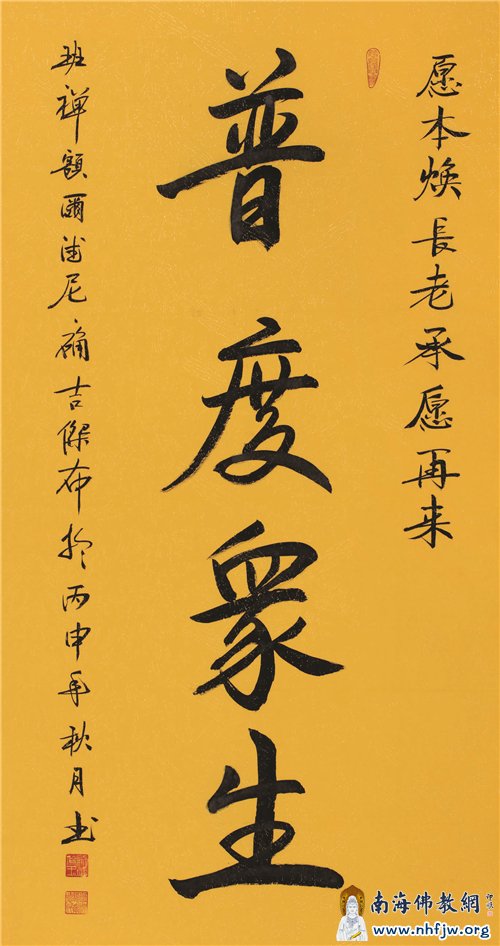 愿本焕長老承愿再来
普度衆生
班禅額爾德尼確吉傑布於丙申年秋月书
南海佛教網
www.nhfjw.org